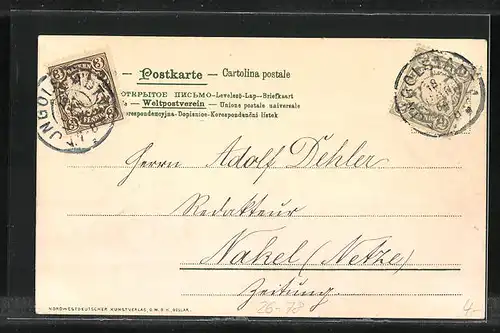 – Postkarte – Cartolina postale
ОТКРЫТОЕ ПИСЬМО – Levelező-Lap – Briefkaart
– Weltpostverein – Unione postale universale
Korespondencyjna – Dopisnice – Korespondenční lístek
3
3
INGOLSTADT
Herrn Adolf Dehler
Redakteur
Nakel (Netze)
Zeitung
NORDWESTDEUTSCHER KUNSTVERLAG, G.M.B.H.
26-78
4.-